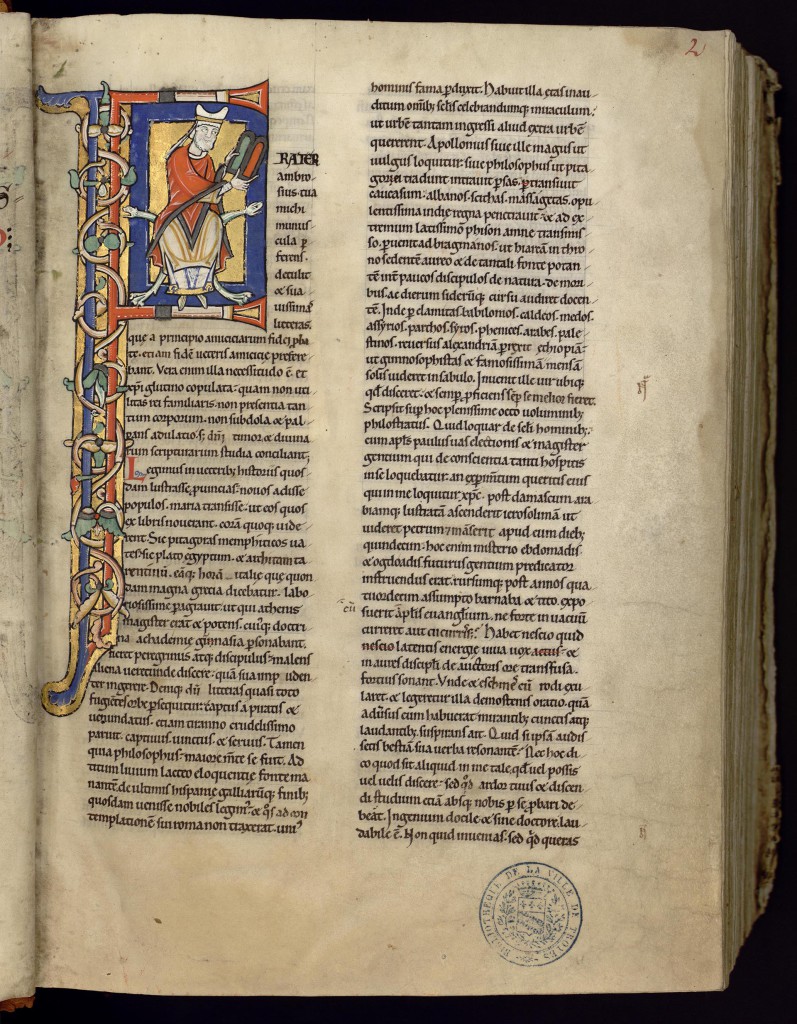 2
FRATER
ambro-
sius tua
michi
munus-
cula p̄
ferens.
detulit
& sua-
uissimas
litteras.
que a principio amiciciarum fidei pba-
te. etiam fidē ueteris amicicie prefere-
bant. Vera enim illa necessitudo ē. et
xp̄i glutino copulata. quam non uti-
litas rei familiaris. non presentia tan-
tum corporum. non subdola & pal-
pans adulatio. s; dn̄i timor & diuina-
rum scripturarum studia conciliant.
Legimus in ueterib; historiis quos-
dam lustrasse puincias. nouos adisse
populos. maria transisse. ut eos quos
ex libris nouerant. corā quoq; uide-
rent. Sic pitagoras memphiticos ua-
tes. sic plato egyptum. & architam ta-
rentinū. eāq; horā italie que quon-
dam magna grecia dicebatur. labo-
riosissime pagrauit. ut qui athenis
magister erat & potens. cuiq; doctri-
na achademie gimnasia psonabant.
fieret peregrinus atq; discipulus. malens
aliena uerecunde discere. quā sua imp uden-
ter ingerere. Deniq; dū litteras quasi toto
fugientes orbe psequitur. captus a piratis &
uenundatus. etiam tiranno crudelissimo
paruit. captiuus. uinctus & seruus. Tamen
quia philosophus. maior emēte se fuit. Ad
titum liuium lacteo eloquentie fonte ma-
nantē. de ultimis hispanie galliarūq; finib;
quosdam uenisse nobiles legim'. & q̄s ad con-
templationē sui roma non traxerat. uni'
hominis fama pduxit. Habuit illa etas inau-
ditum omib; sclis celebrandumq; miraculum.
ut urbē tantam ingressi. aliud extra urbē
quererent. Apollonius siue ille magus ut
uulgus loquitur. siue philosophus ut pita-
gorei tradunt. intrauit psas. ptransiuit
caucasum. albanos. scithas. massagetas. opu-
lentissima indie regna penetrauit. & ad ex-
tremum latissimo phison amne transmis-
so. puenit ad bragmanos. ut hiarcā in thro-
no sedentē aureo & de tantali fonte potan-
tē int̄ paucos discipulos de natura. de mori-
bus. ac dierum siderūq; cursu audiret docen-
tē. Inde p elamitas. babilonios. caldeos. medos.
assyrios. parthos. syros. phenices. arabes. pale-
stinos. reuersus alexandriā. prexit ethiopiā.
ut gimnosophistas & famosissimā mensā
solis uideret in sabulo. Inuenit ille uir ubiq;
qd disceret. & semp pficiens. semp se melior fieret.
Scripsit sup hoc plenissime octo uoluminib;
philostratus. Quid loquar de scli hominib;
cum apls paulus uas electionis & magister
gentium qui de conscientia tanti hospitis
in se loquebatur. an expimentum queritis eius
qui in me loquitur xpc̄. post damascum ara-
biamq; lustratā ascenderit ierosolimā ut
uideret petrum 7 māserit apud eum dieb;
quindecim. hoc enim misterio ebdomadis
& ogdoadis futurus gentium predicator
instruendus erat. rursumq; post annos qua-
tuordecim assumpto barnaba & tito. expo-
cū
suerit aplis euanglium. ne forte in uacuū
curreret aut cucurrisset. Habet nescio quid
nescio latentis energie uiua uox. & in
in aures discipli de auctoris ore transfusa.
fortius sonant. Vnde & eschines cū rodi exu-
laret. & legeretur illa demostenis oratio. quā
aduersus eum habuerat. mirantib; cunctis atq;
laudantib;. suspirans ait. Quid si ipsā audis-
setis bestiā. sua uerba resonantē. Nec hoc di-
co quod sit aliquid in me tale. qd uel possis
uel uelis discere. sed qd ardor tuus & discen-
di studium etiā absq; nobis p se pbari de-
beat. Ingenium docile & sine doctore. lau-
dabile ē. Non quid inuenias. sed qd queras
BIBLIOTHÈQUE DE LA VILLE DE TROYES